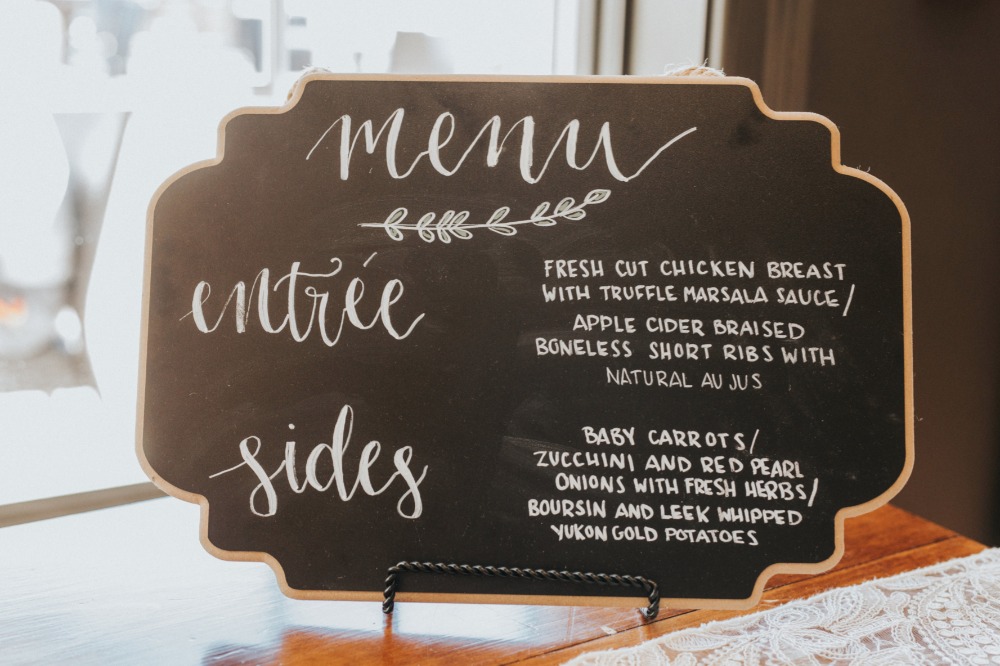 menu
entrée
FRESH CUT CHICKEN BREAST
WITH TRUFFLE MARSALA SAUCE/
APPLE CIDER BRAISED
BONELESS SHORT RIBS WITH
NATURAL AU JUS
sides
BABY CARROTS/
ZUCCHINI AND RED PEARL
ONIONS WITH FRESH HERBS/
BOURSIN AND LEEK WHIPPED
YUKON GOLD POTATOES